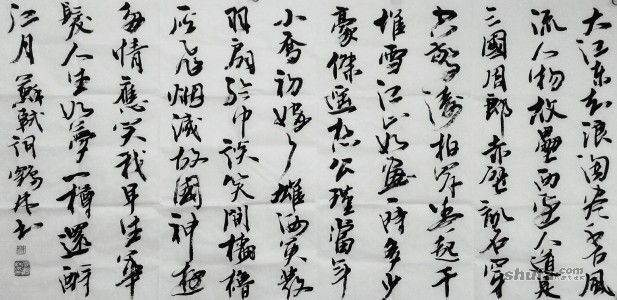 大江东去浪淘尽千古风
流人物故壘西邊人道是
三國周郎赤壁亂石穿
空驚濤拍岸卷起千
堆雪江山如畫一時多少
豪傑遥想公瑾當年
小喬初嫁了雄姿英發
羽扇纶巾談笑間檣櫓
灰飛烟滅故國神遊
多情應笑我早生華
髮人生如夢一樽還酹
江月 蘇軾詞 书